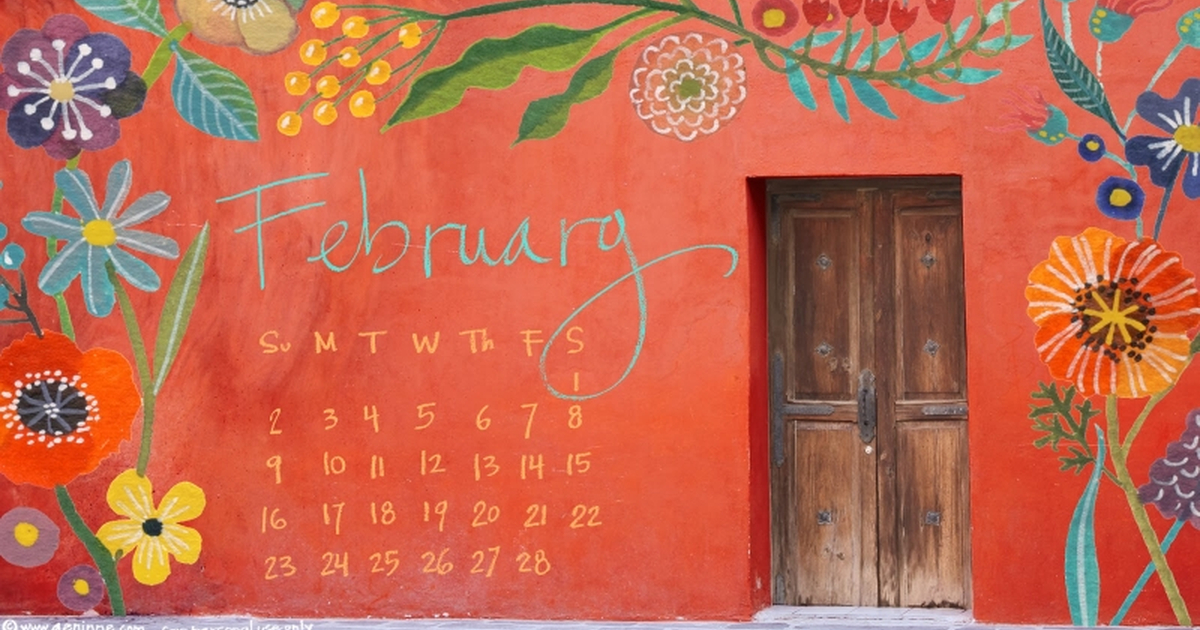 February
Su M T W Th F S
1
2 3 4 5 6 7 8
9 10 11 12 13 14 15
16 17 18 19 20 21 22
23 24 25 26 27 28
© www.geninne.com